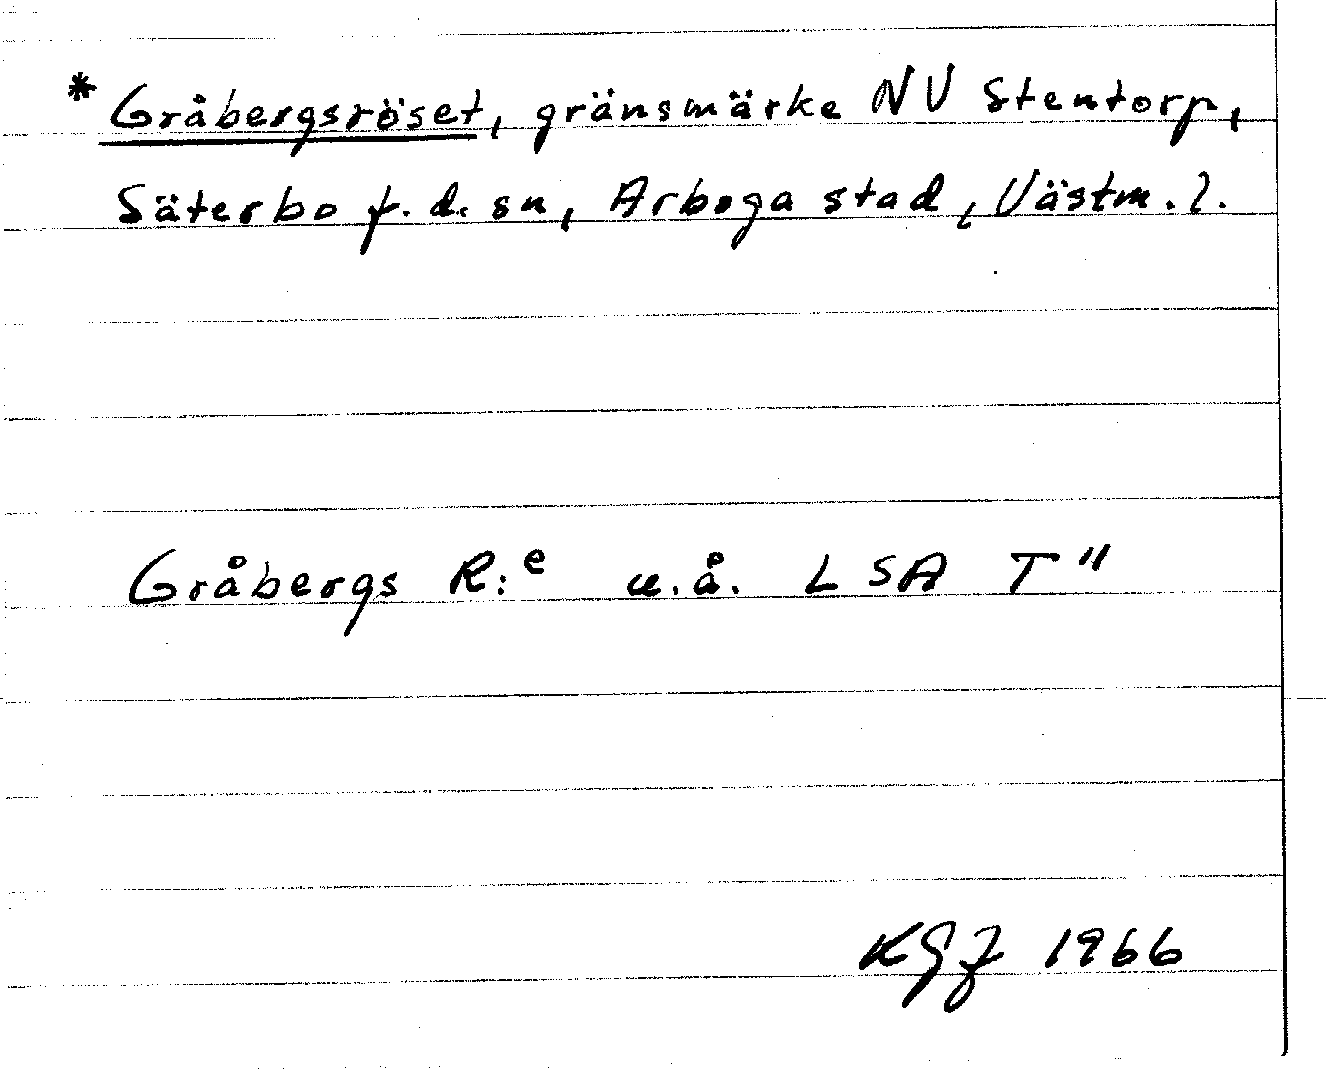 * Gråbergsröset, gränsmärke NV Stentorp,
Säterbo f.d. sn, Arboga stad, Västm. l.
Gråbergs R:e u.å. LSA T"
KGJ 1966